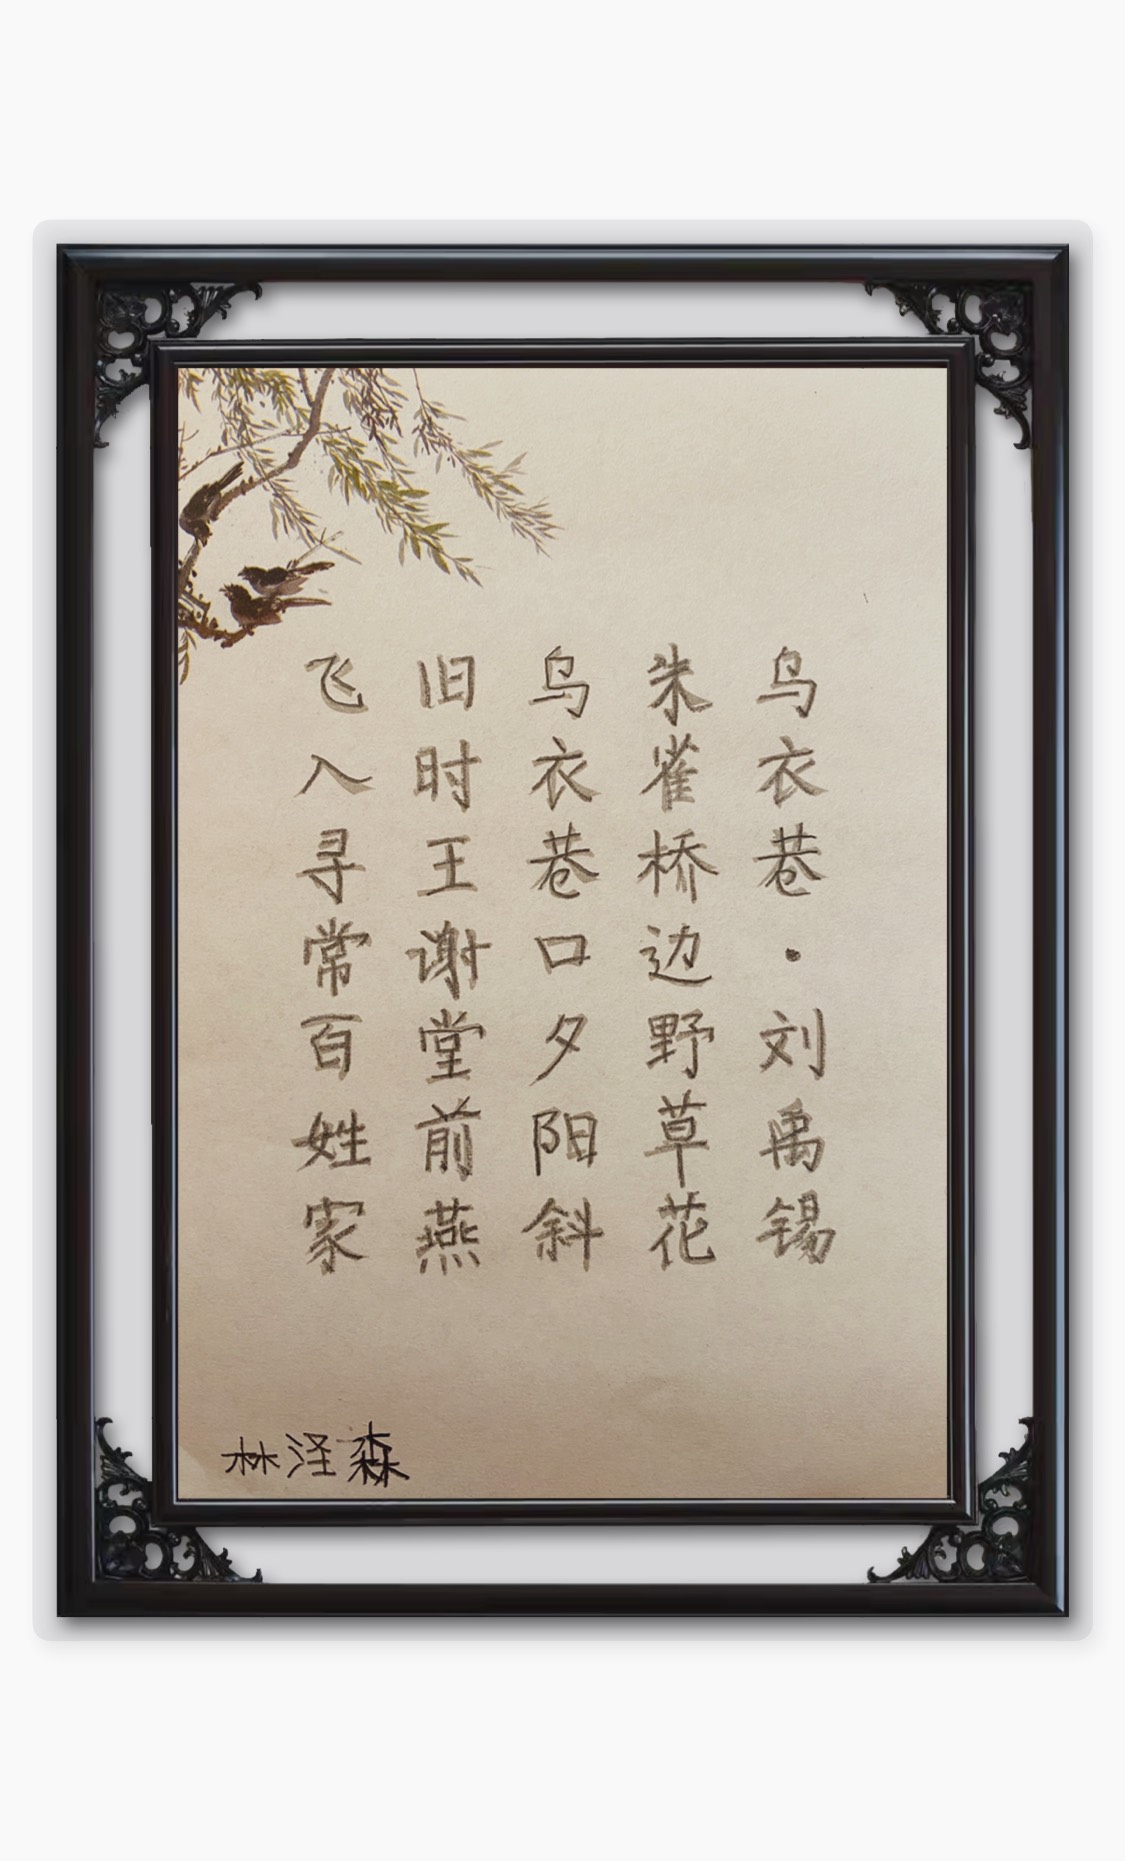 乌衣巷·刘禹锡
朱雀桥边野草花
乌衣巷口夕阳斜
旧时王谢堂前燕
飞入寻常百姓家
林泽森